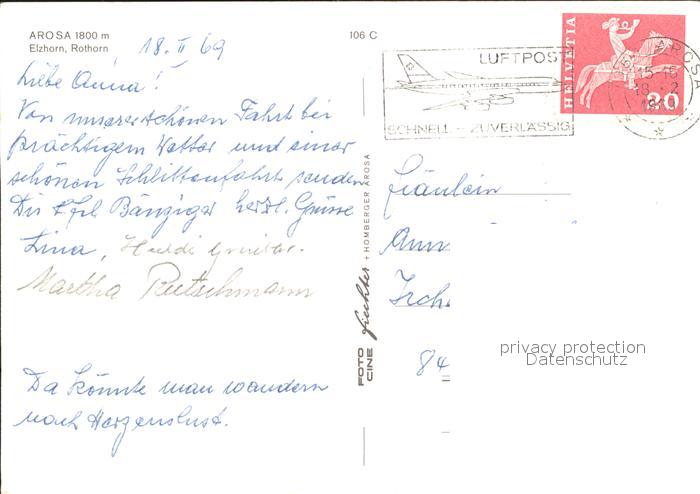 AROSA 1800 m
Elzhorn, Rothorn
106 C
18. II 69
Liebe Anna!
Von unserer schönen Fahrt bei
prächtigem Wetter und einer
schönen Schlittenfahrt senden
Dir & Frl. Bänziger herzl. Grüsse
Lina, Heidi
Martha Rutschmann
Da könnte man wandern
nach Herzenslust.
FOTO CINE fiechter + HOMBERGER AROSA
LUFTPOST
SCHNELL - ZUVERLÄSSIG
HELVETIA
AROSA
15-16
18. 2
30
Fräulein
Ann
84
privacy protection
Datenschutz